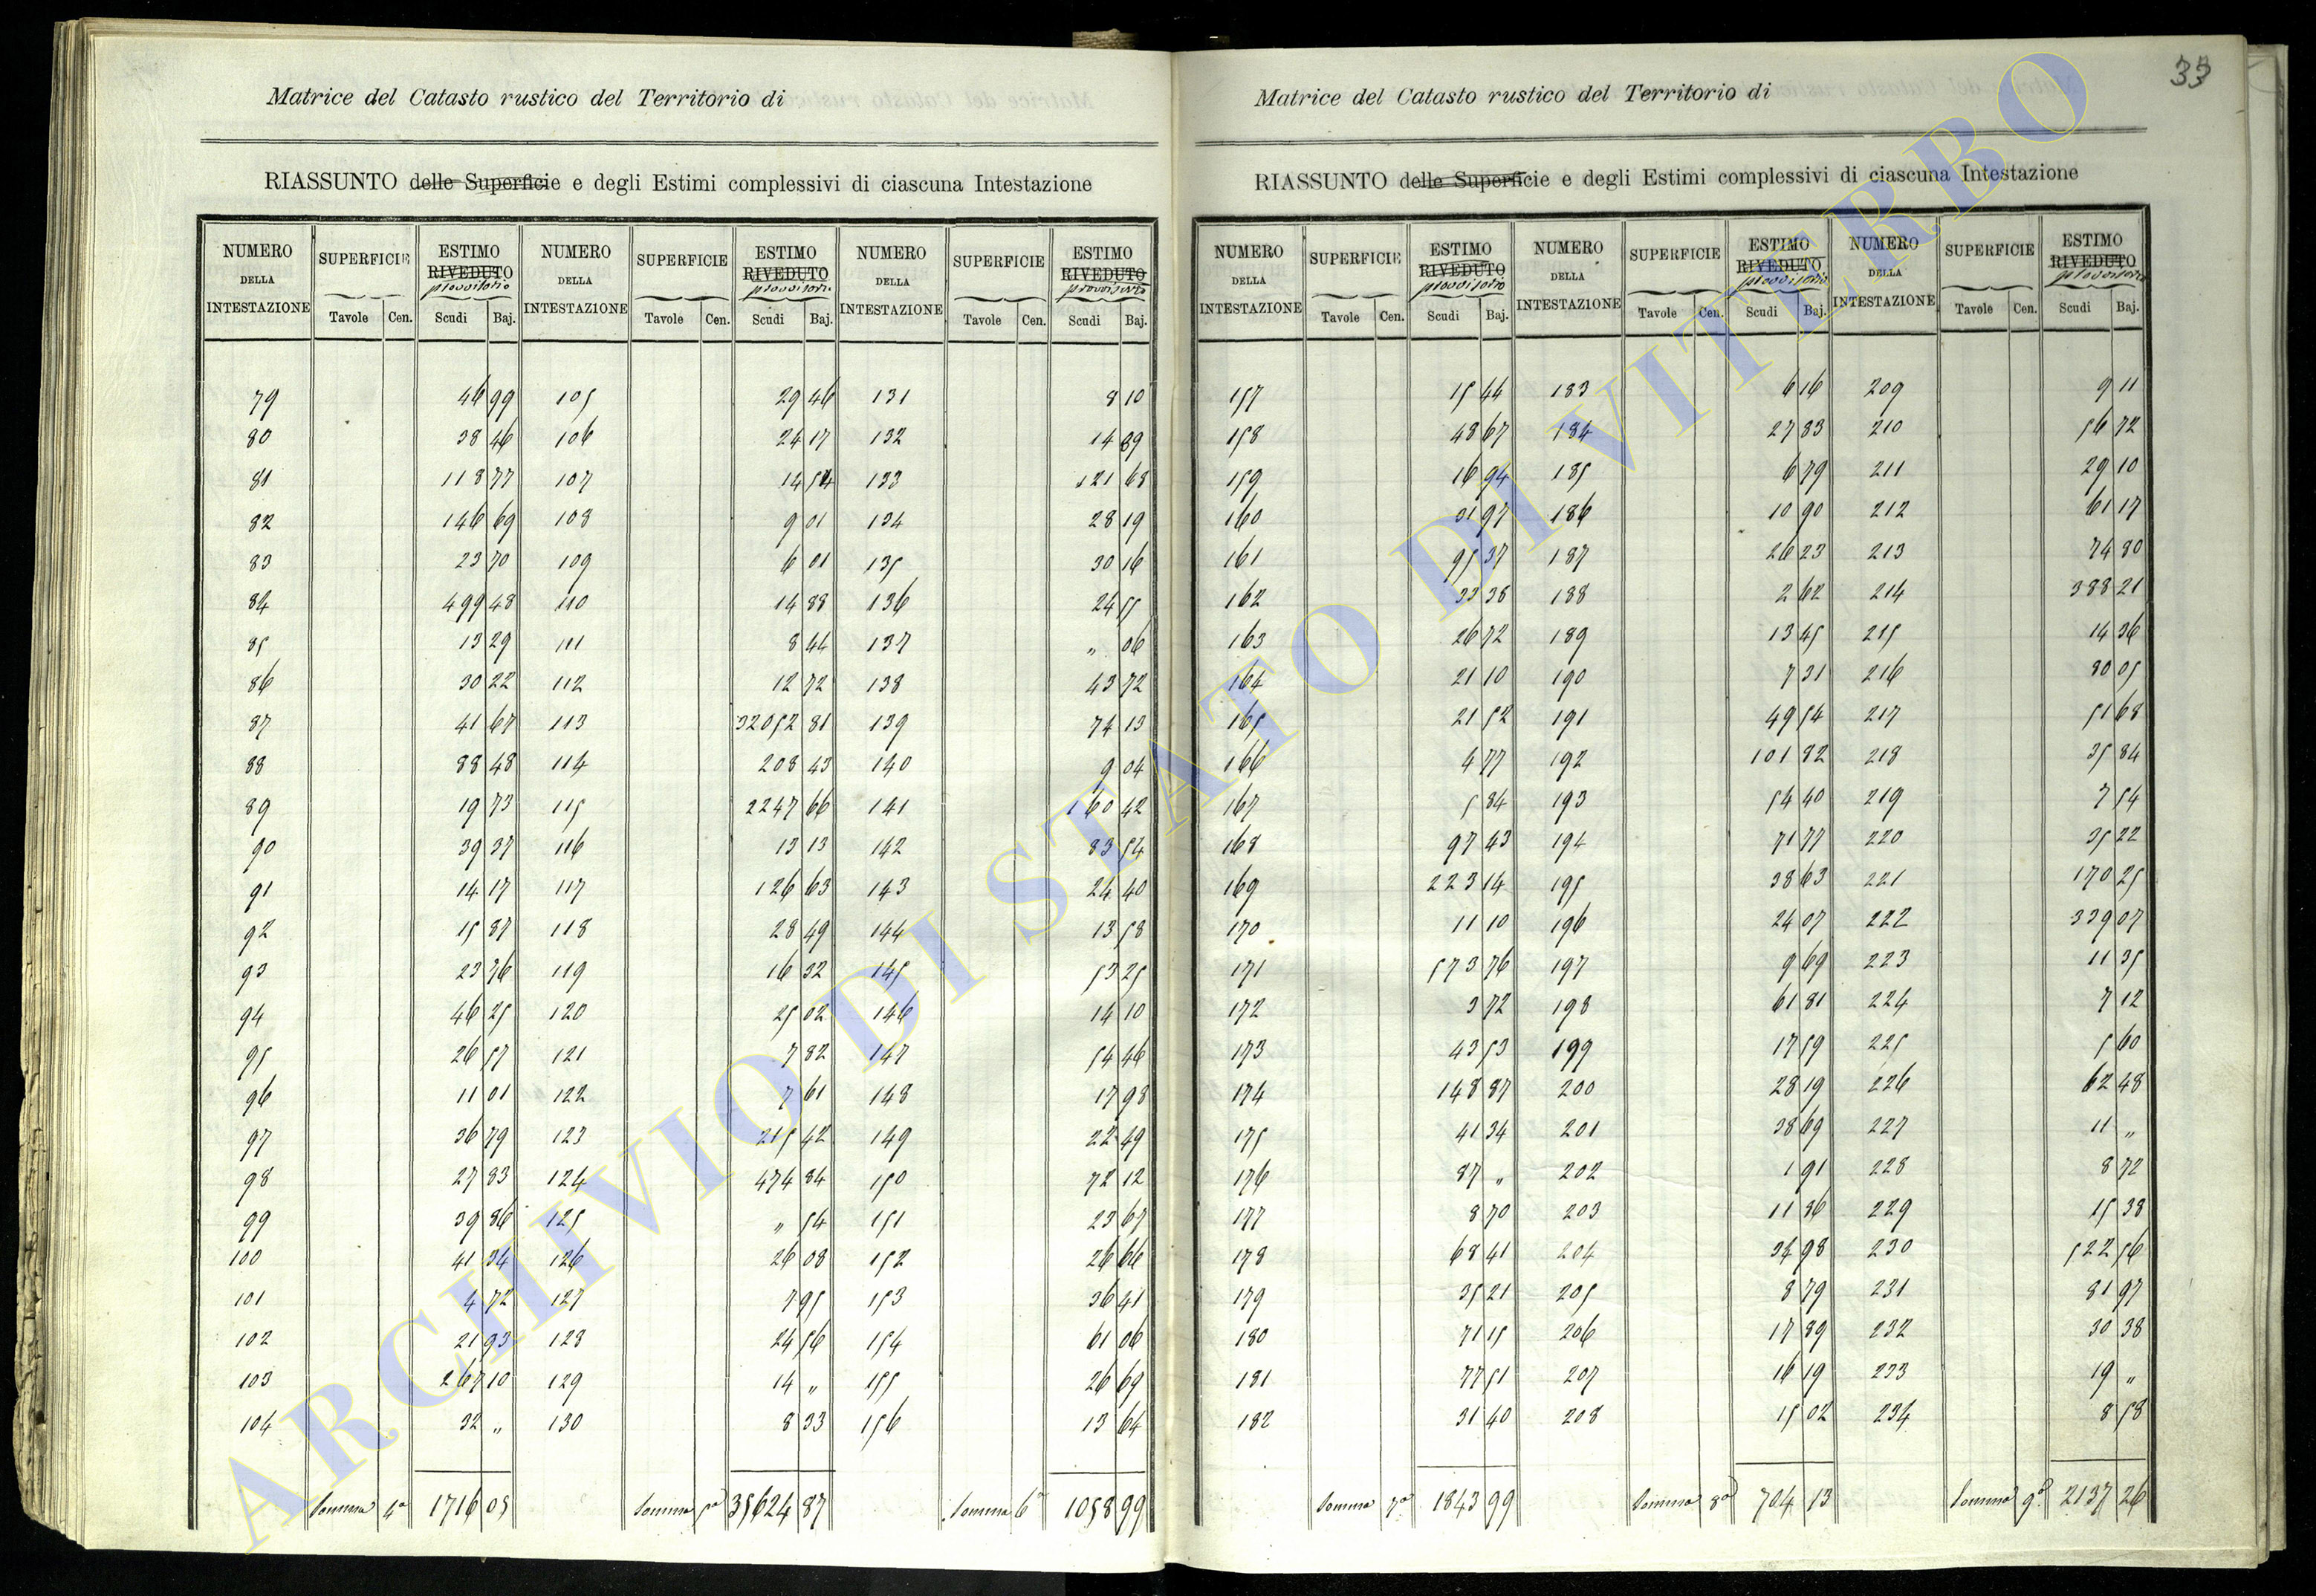 33
Matrice del Catasto rustico del Territorio di
RIASSUNTO delle Superficie e degli Estimi complessivi di ciascuna Intestazione
NUMERO DELLA INTESTAZIONE SUPERFICIE ESTIMO RIVEDUTO provvisorio NUMERO DELLA INTESTAZIONE SUPERFICIE ESTIMO RIVEDUTO provvisorio NUMERO DELLA INTESTAZIONE SUPERFICIE ESTIMO RIVEDUTO provvisorio
Tavole Cen. Scudi Baj. Tavole Cen. Scudi Baj. Tavole Cen. Scudi Baj.
79 46 99 105 29 46 131 8 10
80 38 46 106 24 17 132 14 89
81 118 77 107 14 54 133 121 68
82 146 69 108 9 01 134 28 19
83 23 70 109 6 01 135 30 16
84 499 48 110 14 88 136 24 55
85 13 29 111 8 44 137 „ 06
86 30 22 112 12 72 138 43 72
87 41 67 113 32052 81 139 74 13
88 88 48 114 208 43 140 9 04
89 19 73 115 2247 66 141 160 42
90 39 37 116 13 13 142 83 54
91 14 17 117 126 63 143 24 40
92 15 87 118 28 49 144 13 58
93 23 36 119 16 32 145 53 25
94 46 25 120 25 02 146 14 10
95 26 57 121 7 82 147 54 46
96 11 01 122 7 61 148 17 98
97 36 79 123 215 42 149 22 49
98 27 83 124 474 84 150 72 12
99 39 86 125 „ 54 151 23 67
100 41 34 126 26 08 152 26 66
101 4 72 127 7 95 153 36 41
102 21 93 128 24 56 154 61 06
103 267 10 129 14 „ 155 26 69
104 32 „ 130 8 33 156 13 64
Somma 4ª 1716 05 Somma 5ª 35624 87 Somma 6ª 1058 99
Matrice del Catasto rustico del Territorio di
RIASSUNTO delle Superficie e degli Estimi complessivi di ciascuna Intestazione
NUMERO DELLA INTESTAZIONE SUPERFICIE ESTIMO RIVEDUTO provvisorio NUMERO DELLA INTESTAZIONE SUPERFICIE ESTIMO RIVEDUTO provvisorio NUMERO DELLA INTESTAZIONE SUPERFICIE ESTIMO RIVEDUTO provvisorio
Tavole Cen. Scudi Baj. Tavole Cen. Scudi Baj. Tavole Cen. Scudi Baj.
157 15 44 183 6 16 209 9 11
158 48 67 184 27 83 210 56 72
159 16 94 185 6 79 211 29 10
160 31 97 186 10 90 212 61 17
161 95 37 187 26 23 213 74 80
162 33 38 188 2 62 214 388 21
163 26 72 189 13 45 215 14 36
164 21 10 190 7 31 216 80 05
165 21 52 191 49 54 217 51 68
166 4 77 192 101 82 218 35 84
167 5 84 193 54 40 219 7 54
168 97 43 194 71 77 220 35 22
169 223 14 195 38 63 221 170 25
170 11 10 196 24 07 222 339 07
171 573 76 197 9 69 223 11 35
172 3 72 198 61 81 224 7 12
173 43 53 199 17 59 225 5 60
174 148 87 200 28 19 226 62 48
175 41 34 201 38 69 227 11 „
176 87 „ 202 1 91 228 8 72
177 8 70 203 11 86 229 15 38
178 68 41 204 34 98 230 522 56
179 35 21 205 8 79 231 81 97
180 71 15 206 17 89 232 30 38
181 77 51 207 16 19 233 19 „
182 31 40 208 15 02 234 8 58
Somma 7ª 1843 99 Somma 8ª 704 13 Somma 9ª 2137 26
ARCHIVIO DI STATO DI VITERBO